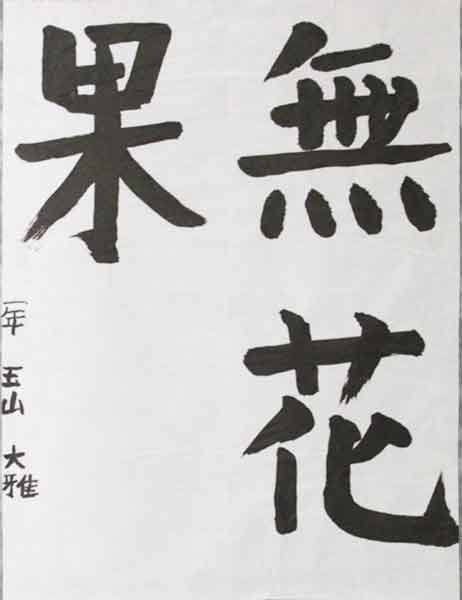 無花
果
一年 玉山 大雅